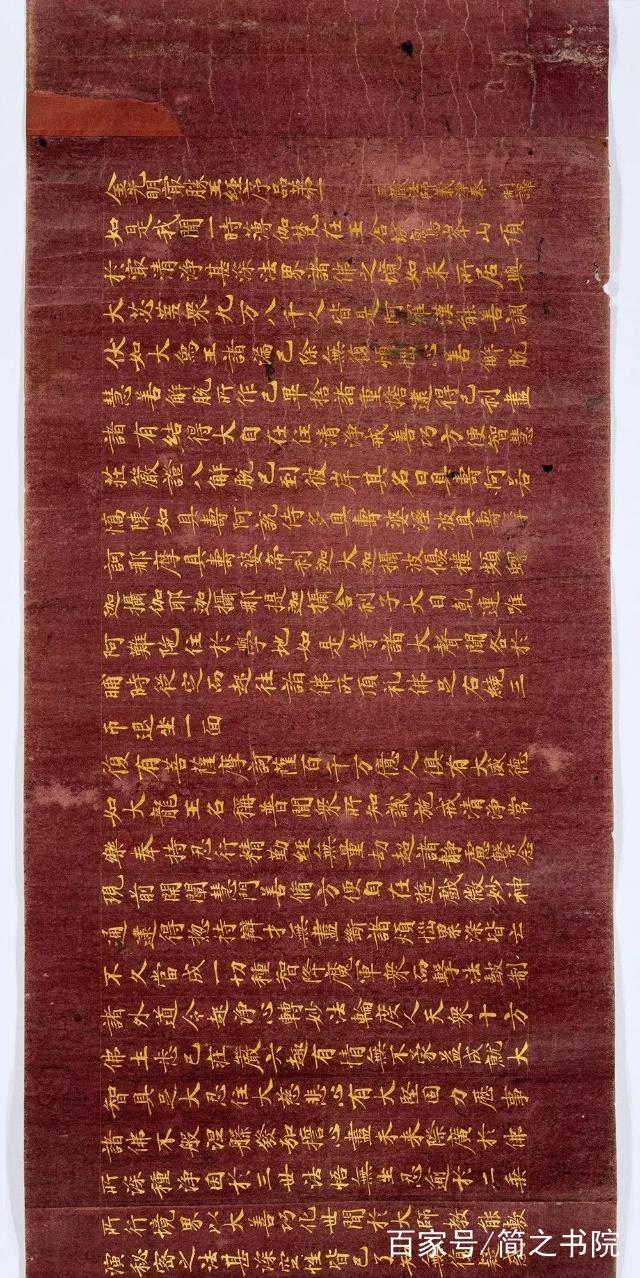 金光明最勝王經序品第一 三藏法師義淨奉 制譯
如是我聞一時薄伽梵在王舍城鷲峯山頂
於最清淨甚深法界諸佛之境如來所居與
大苾蒭眾九万八千人皆是阿羅漢能善調
伏如大象王諸漏已除無復煩惱心善解脫
慧善解脫所作已畢捨諸重擔逮得己利盡
諸有結得大自在住清淨戒善巧方便智慧
莊嚴證八解脫已到彼岸其名曰具壽阿若
憍陳如具壽阿說侍多具壽婆澀波具壽
訶那摩具壽婆帝利迦大迦攝波優樓頻螺
迦攝伽耶迦攝那提迦攝舍利子大目乾連唯
阿難陁住於學地如是等諸大聲聞各於
晡時從定而起往詣佛所頂礼佛足右繞三
帀退坐一面
復有菩薩摩訶薩百千万億人俱有大威德
如大龍王名稱普聞眾所知識施戒清淨常
樂奉持忍行精勤經無量劫超諸靜慮繫念
現前開闡慧門善修方便自在遊戲微妙神
通逮得惣持辯才無盡斷諸煩惱累染皆亡
不久當成一切種智降魔軍眾而擊法鼓制
諸外道令起淨心轉妙法輪度人天眾十方
佛土悉已莊嚴六趣有情無不蒙益成就大
智具足大忍住大慈悲心有大堅固力歷事
諸佛不般涅槃發弘誓心盡未來際廣於佛
所深種淨因於三世法悟無生忍逾於二乘
所行境界以大善巧化世間於大師教能敷
演秘密之法甚深空性皆已了知無
百家号/简之书院